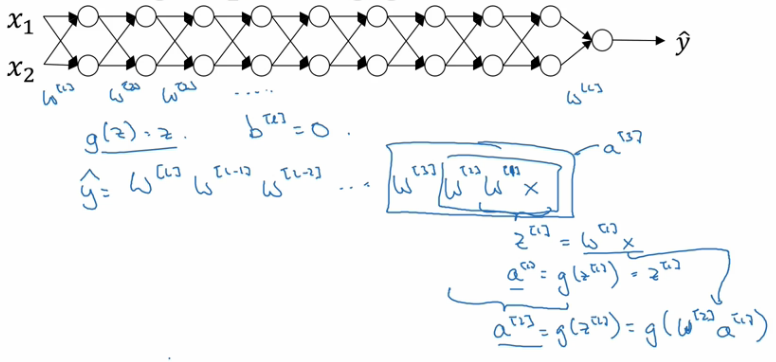 x₁ ŷ
x₂
W^[1] W^[2] W^[3] ..... W^[L]
g(z) = z. b^[l] = 0.
a^[3]
ŷ = W^[L] W^[L-1] W^[L-2] ... W^[3] W^[2] W^[1] x
z^[1] = W^[1] x
a^[1] = g(z^[1]) = z^[1]
a^[2] = g(z^[2]) = g(W^[2] a^[1])